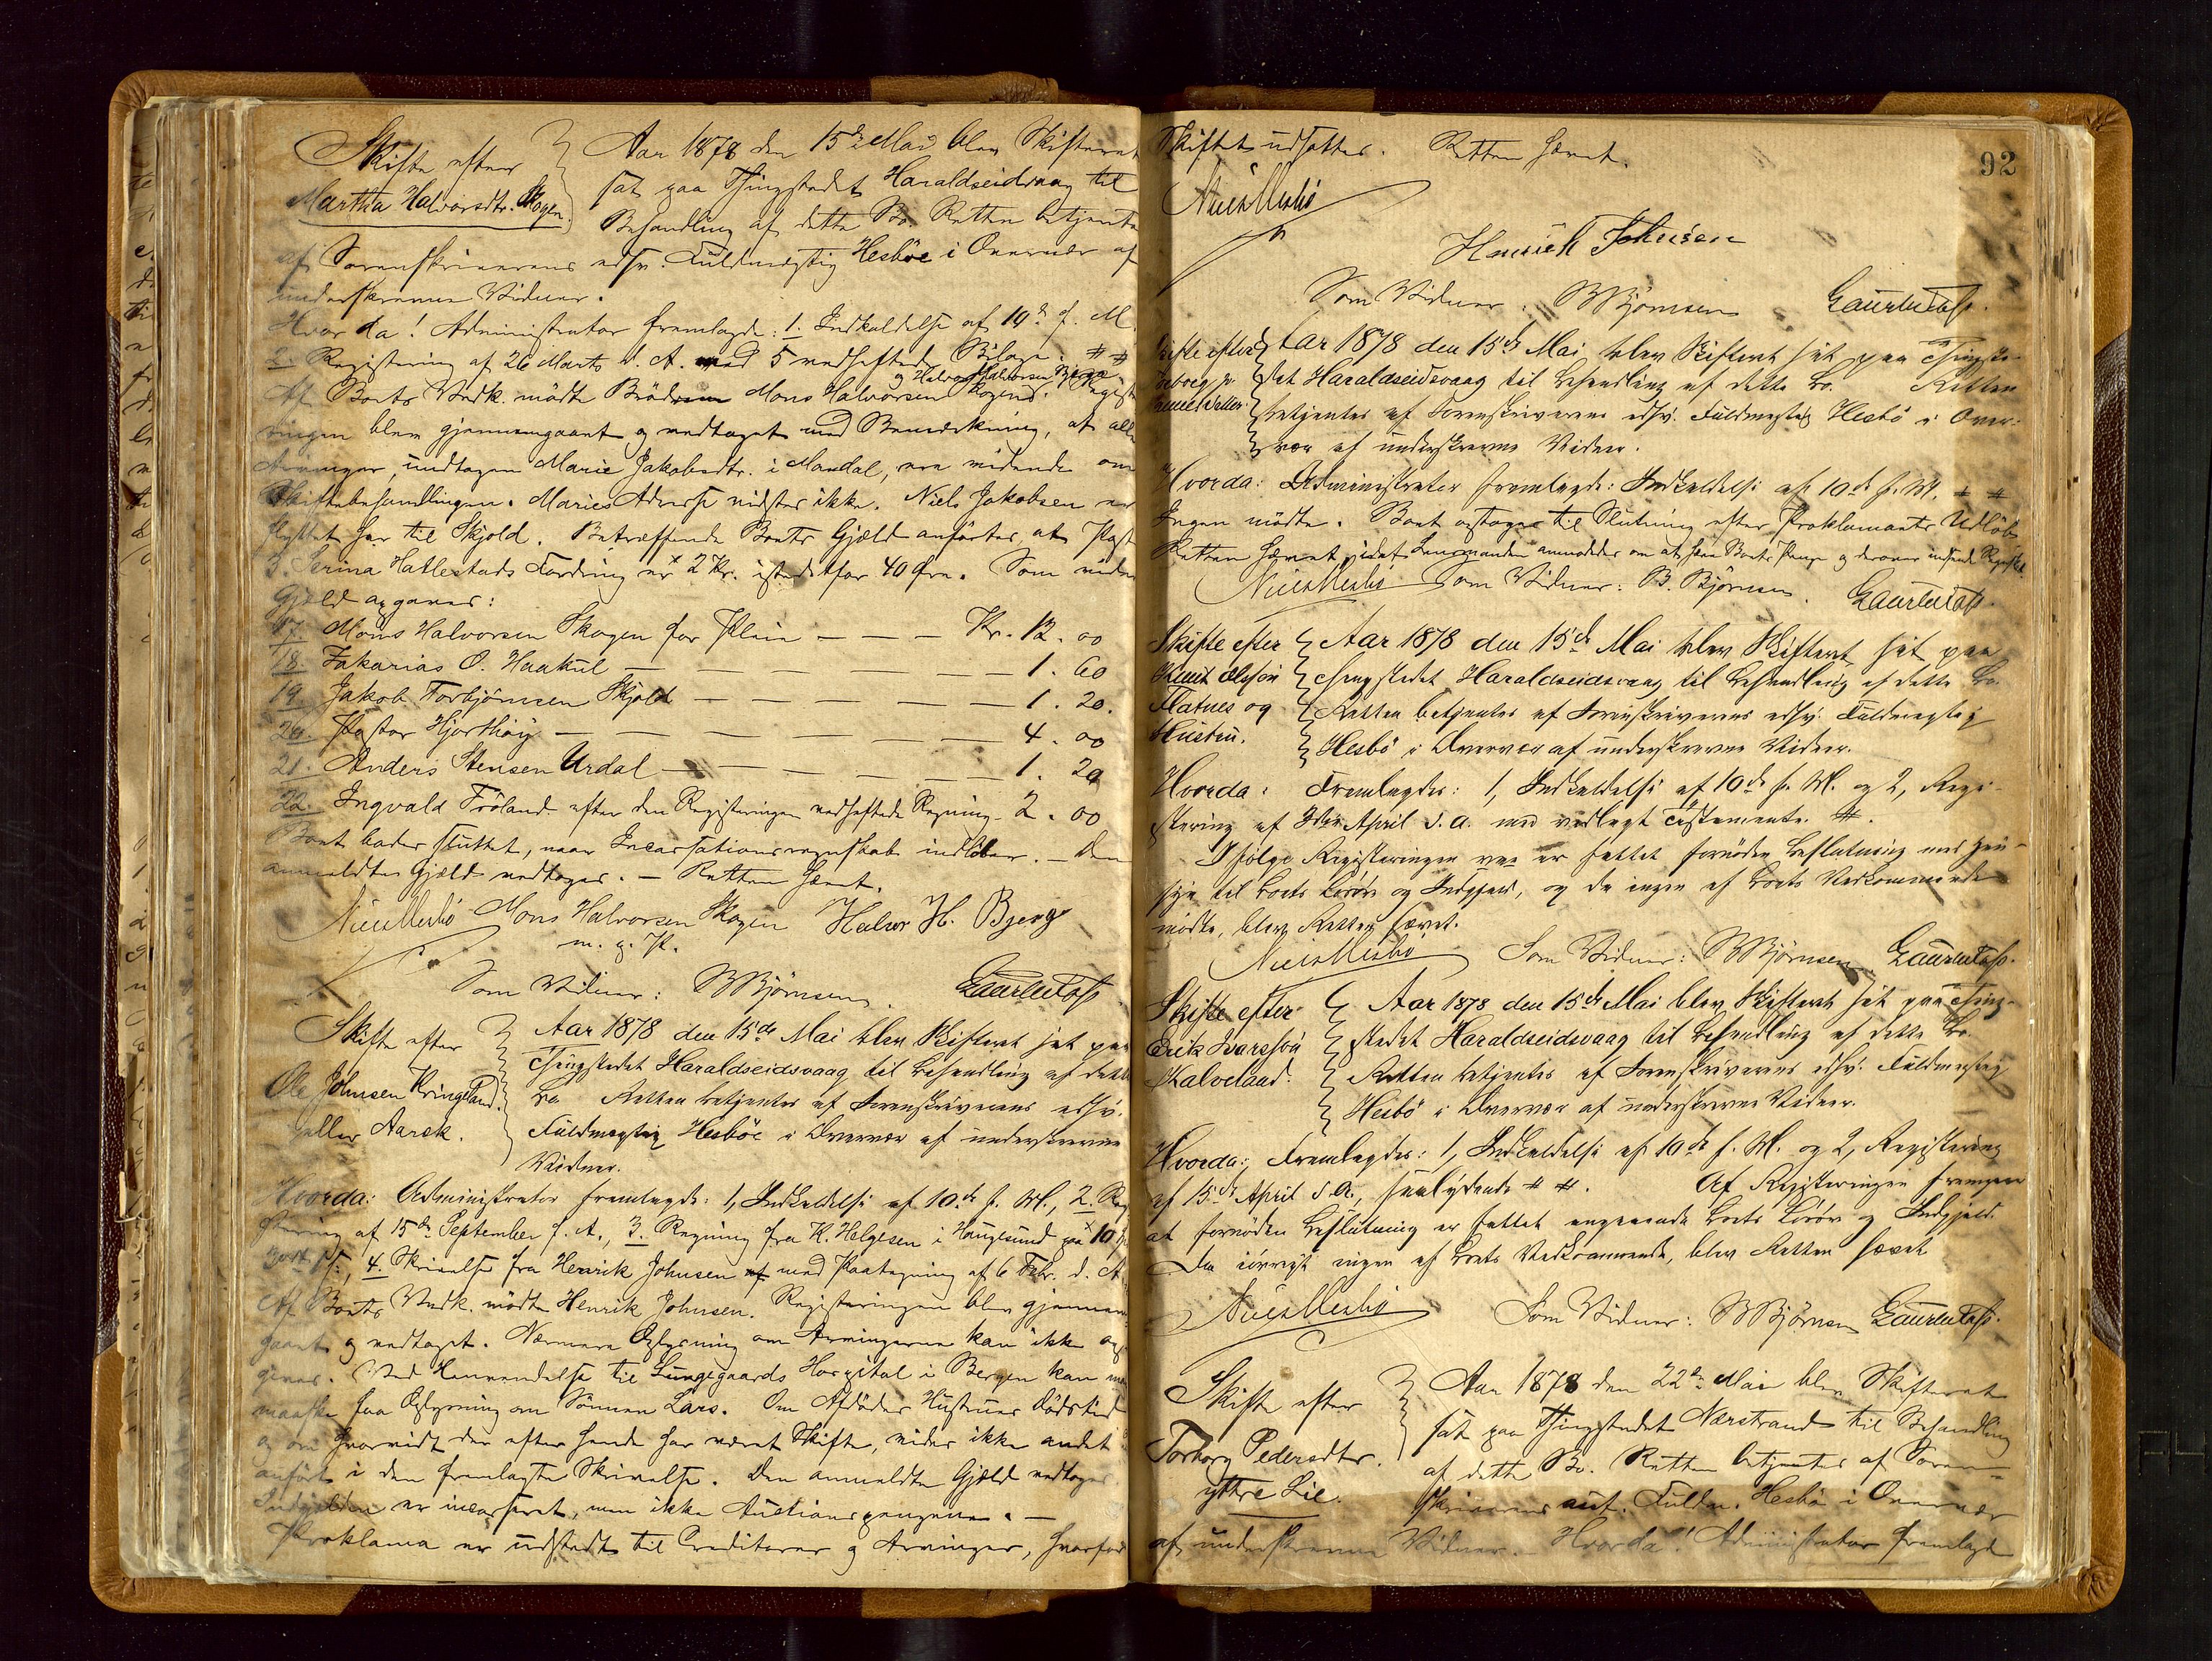 Skifte efter
Martha Halvorsdtr. Skogen.
Aar 1878 den 15de Mai blev Skifteret
sat paa Thingstedet Haraldseidvaag til
Behandling af dette Bo. Retten betjent
af Sorenskriverens edsv. Fuldmægtig Hesböe i Overvær af
underskrevne Vidner.
Hvorda! Administrator fremlagde: 1. Indkaldelse af 10de f. M.
2. Registering af 26 Marts d. A. med 5 vedheftede Bilage. ##
og Halvor Halvorsen Bjerge
Af Boets Vedk. mödte Brödrene Mons Halvorsen Skogen. Regist
ringen blev gjennemgaaet og vedtaget med Bemærkning, at alle
Arvinger, undtagen Marie Jakobsdtr. i Mandal, ere vidende om
Skiftebehandlingen. Maries Adresse vidstes ikke. Niels Jakobsen er
flyttet her til Skjold. Betræffende Boets Gjæld anförtes, at Post
3. Serina Hatlestads Fordring er 2 Kr. istedetfor 40 Öre. Som viden
Gjæld opgaves:
17. Mons Halvorsen Skogen for Pleie — — — Kr. 12.00
18. Zakarias O. Haakul — — — 1.60
19. Jakob Torbjörnsen Skjold — — — 1.20.
20. Pastor Hjorthöy — — — 4.00
21. Anders Stensen Urdal — — — 1.20
22. Ingvald Fröland efter den Registeringen vedheftede Regning 2.00
Boet bades sluttet, naar Incassationsregnskab indlöber. — Den
anmeldte Gjæld vedtoges. — Retten hævet.
Niels Hesbö Mons Halvorsen Skogen Halvor H. Bjerge
m. p. P.
Som Vidner: B Björnsen.
Skifte efter
Ole Johnsen Kringeland
eller Aarek.
Aar 1878 den 15de Mai blev Skifteret sat paa
Thingstedet Haraldseidsvaag til Behandling af dette
Bo. Retten betjentes af Sorenskriverens edsv.
Fuldmægtig Hesböe i Overvær af underskrevne
Vidner.
Hvorda: Administrator fremlagde: 1, Indkaldelse af 10de f. M., 2. Reg
stering af 15de September f. A., 3. Regning fra K. Helgesen i Haugesund paa 10
4. Skrivelse fra Henrik Johnsen af med Paategning af 6 Febr. d. A.
Af Boets Vedk. mödte Henrik Johnsen. Registeringen blev gjennem
gaaet og vedtaget. Nærmere Oplysning om Arvingerne kan ikke op
gives. Ved Henvendelse til Lungegaards Hospital i Bergen kan man
maaske faa Oplysning om Sönnen Lars. Om Afdödes Hustrues Dödstid
og om hvorvidt der efter hende har været Skifte, vides ikke andet
anfört i den fremlagte Skrivelse. Den anmeldte Gjæld vedtoges
Indgjelden er incasseret, men ikke Auctionspengene. —
Proklama er udstedt til Creditorer og Arvinger, hvorfor
92
Skiftet udsættes. Retten hævet.
Niels Hesbö
Henrich Johnsen
Som Vidner: B Björnsen
Skifte efter
Aar 1878 den 15de Mai blev Skifteret sat paa Thingste-
det Haraldseidsvaag til Behandling af dette Bo. Retten
betjentes af Sorenskriverens edsv. Fuldmægtig Hesbö i Over-
vær af underskrevne Vidner.
Hvorda: Administrator fremlagde: Indkaldelse af 10de f. M. # #
Ingen mödte. Boet optages til Slutning efter Proklamaets Udlöb
Retten hævet, idet Lensmanden anmodedes om at
Niels Hesbö Som Vidner: B. Björnsen.
Skifte efter
Knut Olsson
Flatnes og
Hustru.
Aar 1878 den 15de Mai blev Skifteret sat paa
Thingstedet Haraldseidsvaag til Behandling af dette Bo.
Retten betjentes af Sorenskriverens edsv. Fuldmægtig
Hesbö i Overvær af underskrevne Vidner.
Hvorda: Fremlagdes: 1, Indkaldelse af 10de f. M. og 2, Regi-
stering af April d. A. med vedlagt Testamente #.
Ifölge Registeringen var er fattet fornöden Beslutning med Hen-
syn til Boets Lösöre og Indgjæld, og da ingen af Boets Vedkommende
mödte, blev Retten hævet.
Niels Hesbö Som Vidner: B Björnsen
Skifte efter
Erik Ivarsson
Kalveland.
Aar 1878 den 15de Mai blev Skifteret sat paa Thing-
stedet Haraldseidsvaag til Behandling af dette Bo.
Retten betjentes af Sorenskriverens edsv. Fuldmægtig
Hesbö i Overvær af underskrevne Vidner.
Hvorda: Fremlagdes: 1, Indkaldelse af 10de f. M. og 2, Registering
af 15de April d. A., saalydende # #. Af Registeringen fremgaar
at fornöden Beslutning er fattet angaaende Boets Lösöre og Indgjæld.
Da iövrigt ingen af Boets Vedkommende, blev Retten hævet
Niels Hesbö Som Vidner: B Björnsen
Skifte efter
Torborg Pedersdtr.
yttre Lie.
Aar 1878 den 22de Mai blev Skifteret
sat paa Thingstedet Nærstrand til Behandling
af dette Bo. Retten betjentes af Soren-
skriverens aut. Fuldm. Hesbö i Overvær
af underskrevne Vidner. — Hvorda! Administrator fremlagde